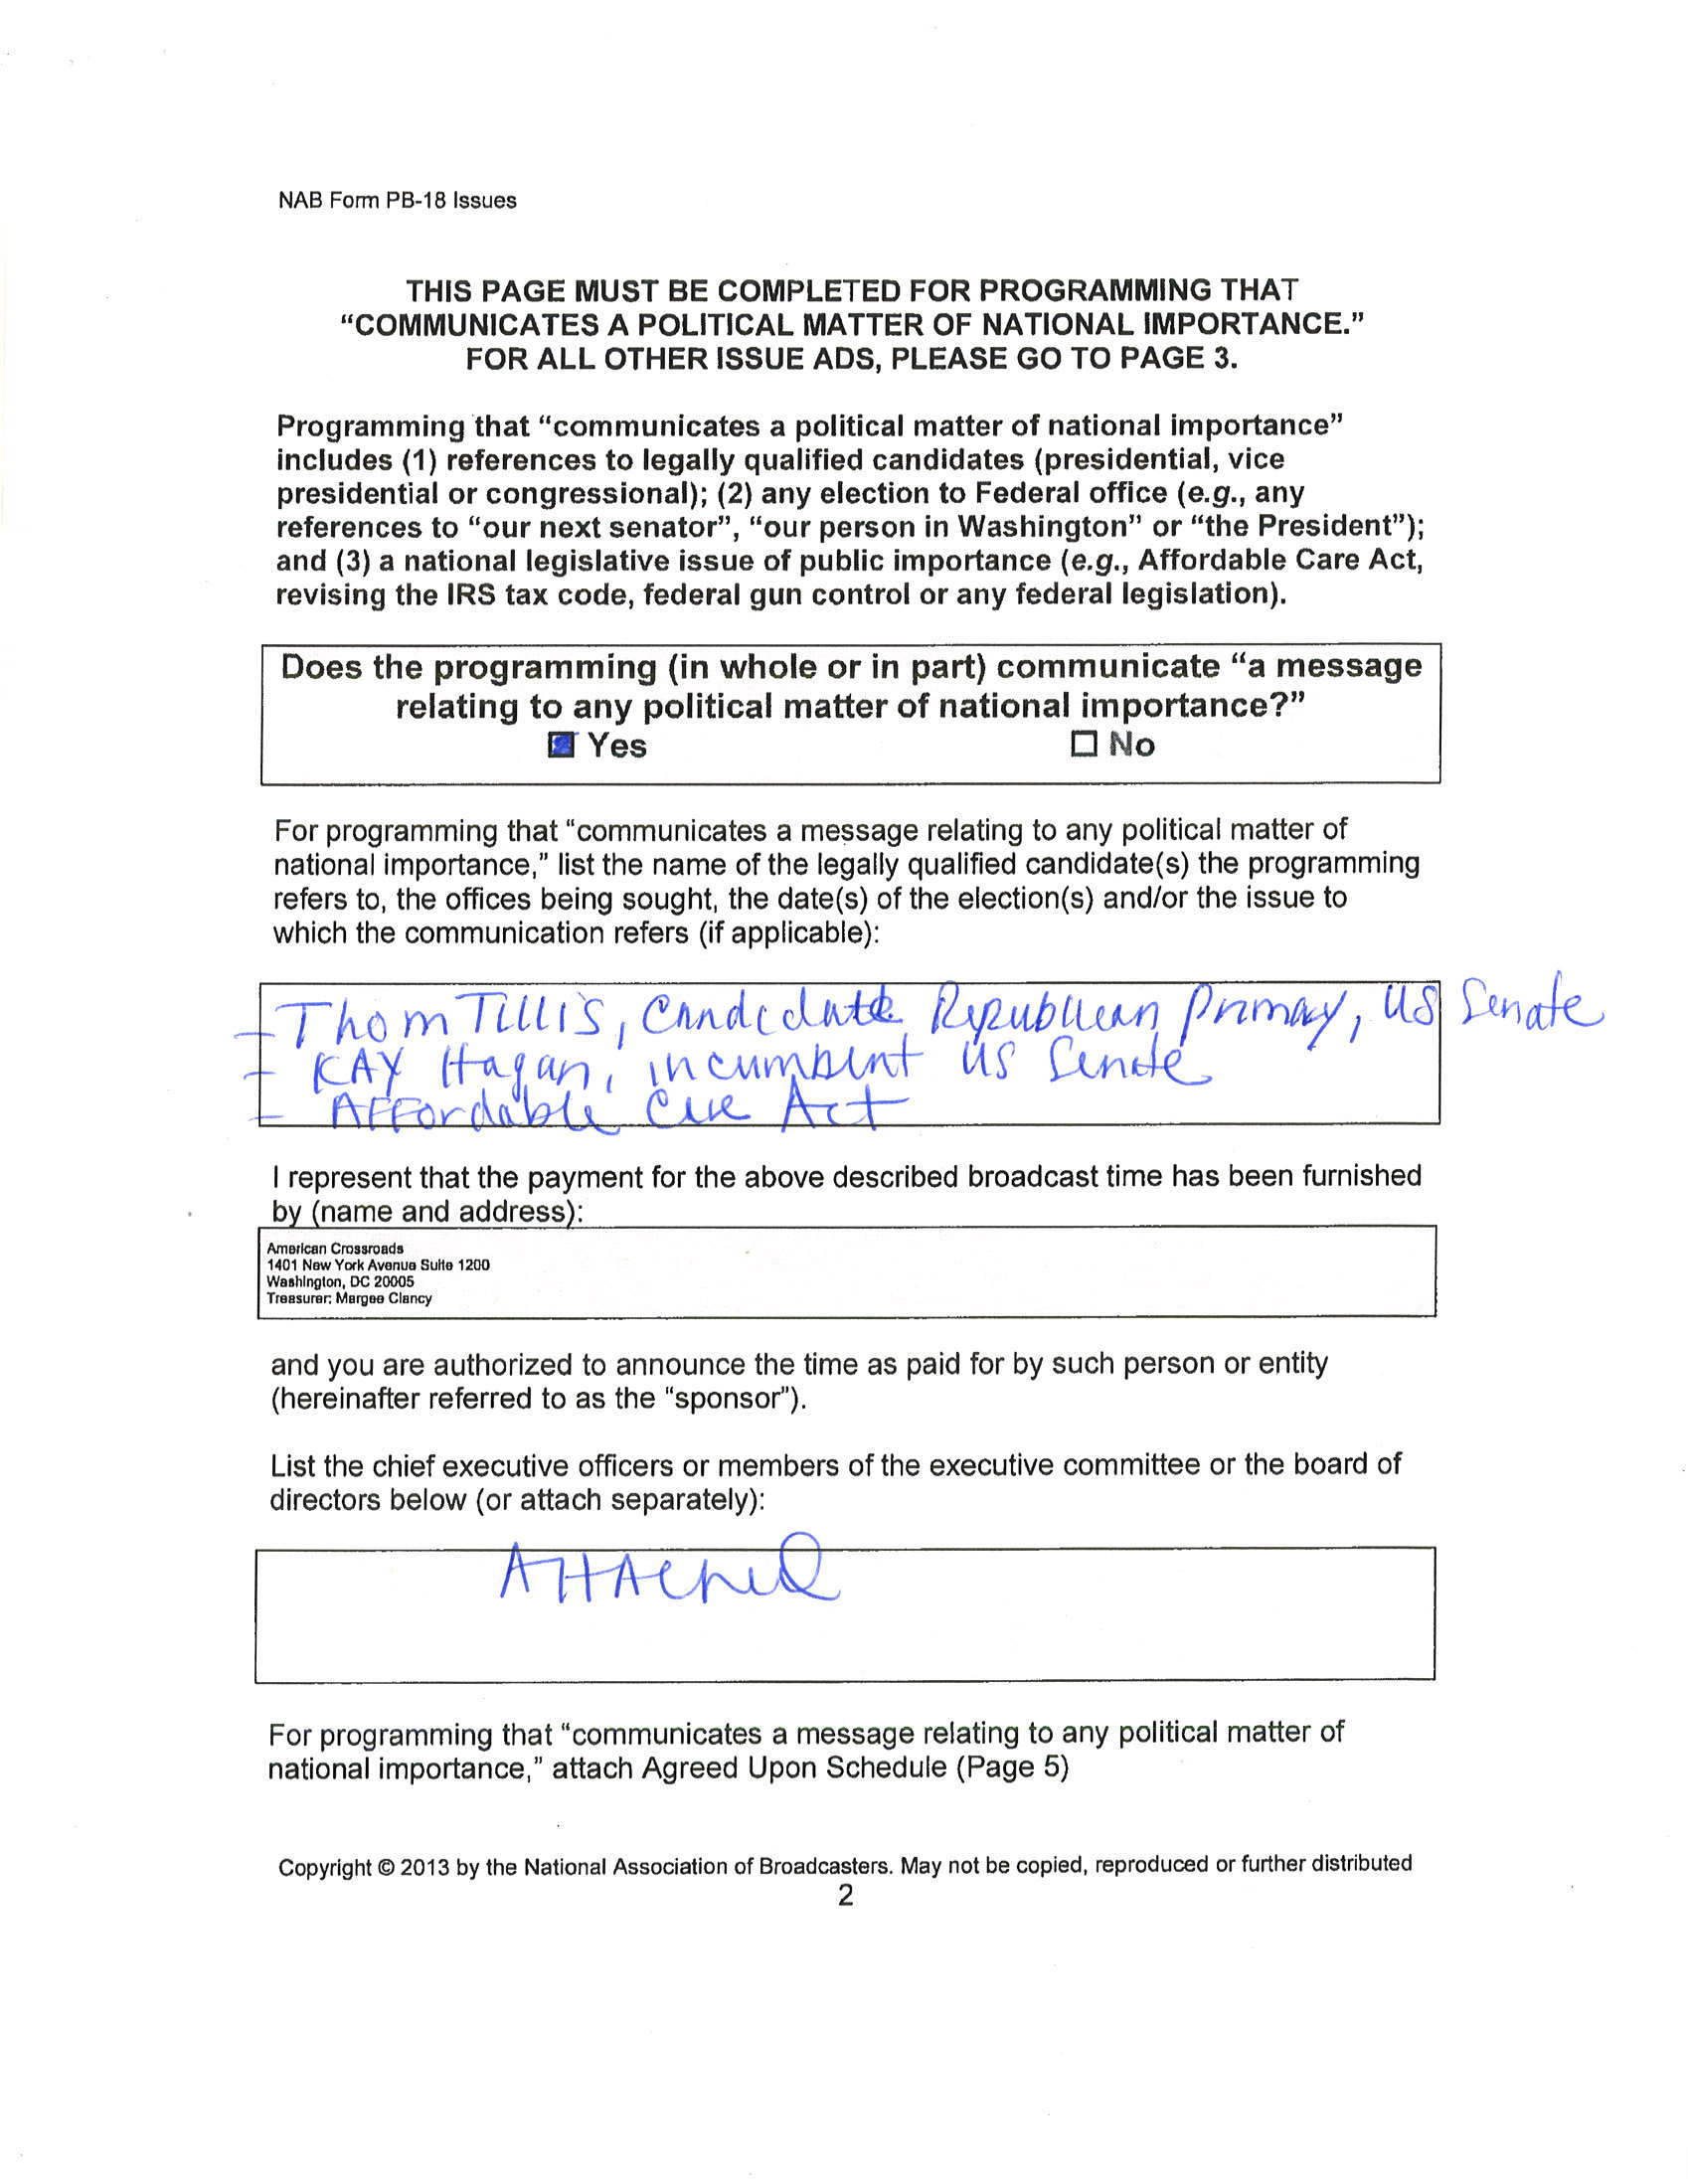 NAB Form PB-18 Issues
THIS PAGE MUST BE COMPLETED FOR PROGRAMMING THAT
“COMMUNICATES A POLITICAL MATTER OF NATIONAL IMPORTANCE.”
FOR ALL OTHER ISSUE ADS, PLEASE GO TO PAGE 3.
Programming that “communicates a political matter of national importance”
includes (1) references to legally qualified candidates (presidential, vice
presidential or congressional); (2) any election to Federal office (e.g., any
references to “our next senator”, “our person in Washington” or “the President”);
and (3) a national legislative issue of public importance (e.g., Affordable Care Act,
revising the IRS tax code, federal gun control or any federal legislation).
Does the programming (in whole or in part) communicate “a message
relating to any political matter of national importance?”
Yes No
For programming that “communicates a message relating to any political matter of
national importance,” list the name of the legally qualified candidate(s) the programming
refers to, the offices being sought, the date(s) of the election(s) and/or the issue to
which the communication refers (if applicable):
- Thom Tillis, Candidate Republican Primary, US Senate
- KAY Hagan, incumbent US Senate
- Affordable Care Act
I represent that the payment for the above described broadcast time has been furnished
by (name and address):
American Crossroads
1401 New York Avenue Suite 1200
Washington, DC 20005
Treasurer: Margee Clancy
and you are authorized to announce the time as paid for by such person or entity
(hereinafter referred to as the “sponsor”).
List the chief executive officers or members of the executive committee or the board of
directors below (or attach separately):
Attached
For programming that “communicates a message relating to any political matter of
national importance,” attach Agreed Upon Schedule (Page 5)
Copyright © 2013 by the National Association of Broadcasters. May not be copied, reproduced or further distributed
2